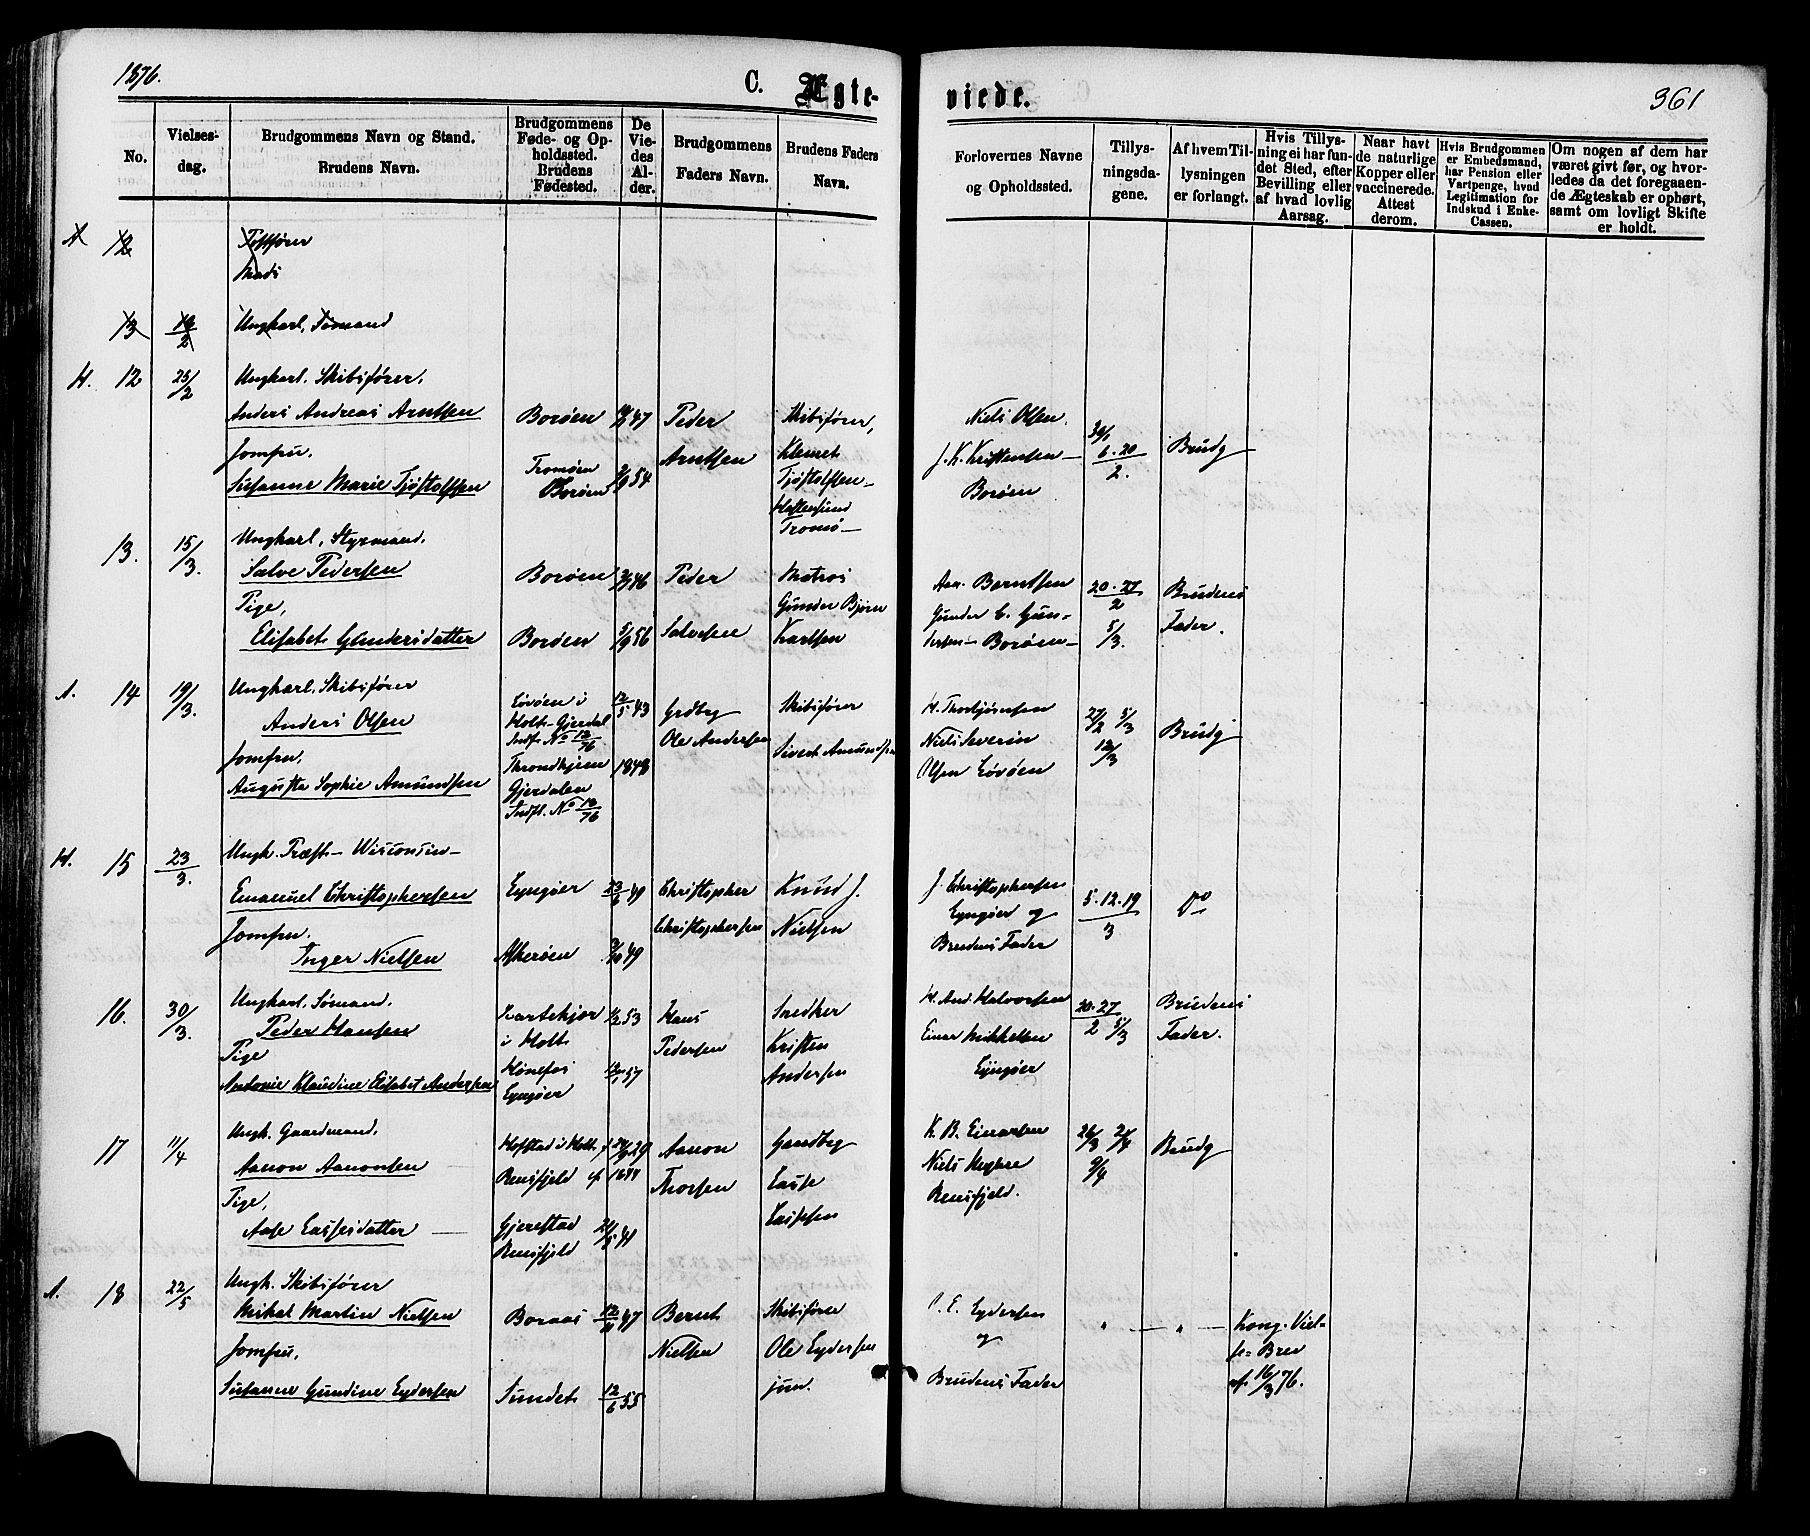 1876.
C. Ægte-
viede.
361
No.
Vielses-
dag.
Brudgommens Navn og Stand.
Brudens Navn.
Brudgommens
Føde- og Op-
holdssted.
Brudens
Fødested.
De
Vie-
des
Al-
der.
Brudgommens
Faders Navn.
Brudens Faders
Navn.
Forlovernes Navne
og Opholdssted.
Tillys-
ningsda-
gene.
Af hvem Til-
lysningen
er forlangt.
Hvis Tillys-
ning ei har fun-
det Sted, efter
Bevilling eller
af hvad lovlig
Aarsag.
Naar havt
de naturlige
Kopper eller
vaccinerede.
Attest
derom.
Hvis Brudgommen
er Embedsmand,
har Pension eller
Vartpenge, hvad
Legitimation for
Indskud i Enke-
Cassen.
Om nogen af dem har
været givt før, og hvor-
ledes da det foregaaen-
de Ægteskab er ophørt,
samt om lovligt Skifte
er holdt.
12
13
Ungkarl, Sømand
H. 12 25/2
Ungkarl. Skibsfører.
Anders Andreas Arntsen
Jomfru.
Susanne Marie Tjøstolfsen
Borøen
47
Tromøen
Borøen
54
Peder
Arntsen
Skibsfører,
Klemet
Tjøstolfsen
Tromø
Niels Olsen.
J. K. Kristensen
Borøen
30/1
6. 20
2.
Brudg
13. 15/3.
Ungkarl, Styrmand.
Salve Pedersen
Pige,
Elisabet Gundersdatter
Borøen
46
Borøen
5/9 56
Peder
Salvesen
Matros
Gunder Bjørn
Karlsen
Aan. Berntsen
Gunder C. Gun-
dersen Borøen
20. 27
2
5/3.
Brudens
Fader.
A. 14 19/3.
Ungkarl, Skibsfører
Anders Olsen
Jomfru,
Augusta Sophie Amundsen
Løvøen i
Holt. Gjerdal
Indf. No 12/76
12/5 43
Throndhjem
Gjerdalen
Indfl. No 13/76
1848
Grdbrg
Ole Andersen
Skibsfører
Sivert Amundsen
H. Thorbjørnsen
Niels Severin
Olsen Løvøen
27/2 5/3
12/3
Brudg
H. 15 23/3.
Ungk. Præst - Wisconsin
Emanuel Christophersen
Jomfru.
Inger Nielsen
Lyngøer
23/6 49
Askerøen
49
Christopher
Christophersen
Knud J.
Nielsen
J. Christophersen
Lyngøer og
Brudens Fader
5. 12. 19
3
Do
16. 30/3.
Ungkarl, Sømand.
Peder Hansen
Pige
Antonie Klaudine Elisabet Andersen
i Holt
53
Hønefos
Lyngøer
57
Hans
Pedersen
Snedker
Kristen
Andersen
H. And. Halvorsen
Einar Mikkelsen
Lyngøer
20. 27
2 5/3
Brudens
Fader.
17 11/4
Ungk. Gaardmand.
Aanon Aanonsen
Pige,
Aase Lassesdatter
Hofstad i Holt, f
29
Rensfjeld
Gjerestad
Rensfjeld
41
Aanon
Thorsen
Gaardbrg
Lasse
Lassen
K. B. Einarsen
Niels
Rensfjeld.
26/3 2/4
9/4
Brudg
A. 18 22/5
Ungk. Skibsfører
Mikal Martin Nielsen
Jomfru,
Susanne Gundine Eydersen
Boraas
47
Sundet
12/6 55
Bernt
Nielsen
Skibsfører
Ole Eydersen
jun.
O. E. Eydersen
og
Brudens Fader
" — " —
Kong. Viel-
se- Brev
af 16/3 76.